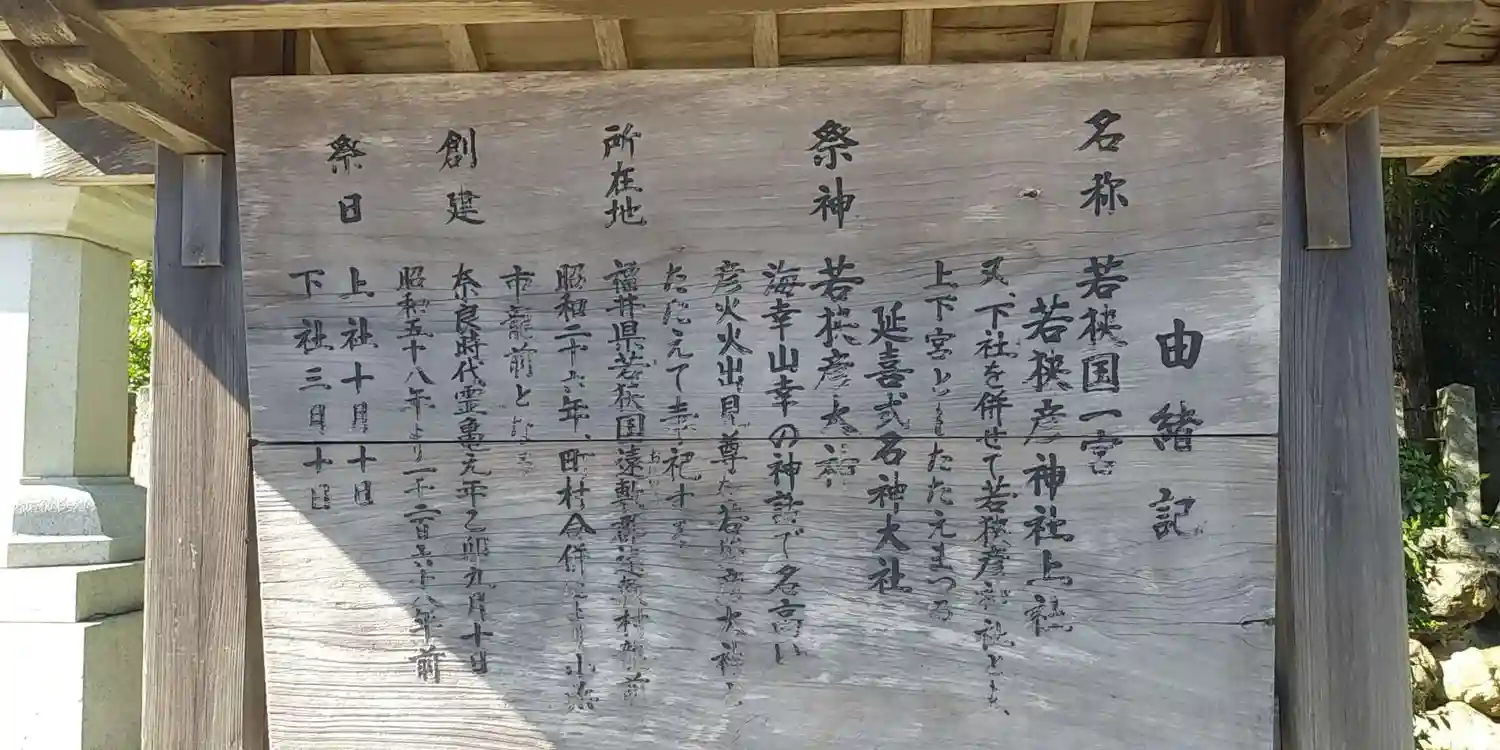 由緒記
名称 若狭国一宮
若狭彦神社上社
又、下社を併せて若狭彦神社とも、
上下宮ともたたえまつる
延喜式名神大社
祭神 若狭彦大神
海幸山幸の神話で名高い
彦火火出見尊を若狭彦大神と
たたえて奉祀す
所在地 福井県若狭国遠敷郡遠敷村龍前
昭和二十六年、町村合併により小浜
市龍前となる
創建 奈良時代霊亀元年乙卯九月十日
昭和五十八年より一千二百六十八年前
祭日 上社十月十日
下社三月十日